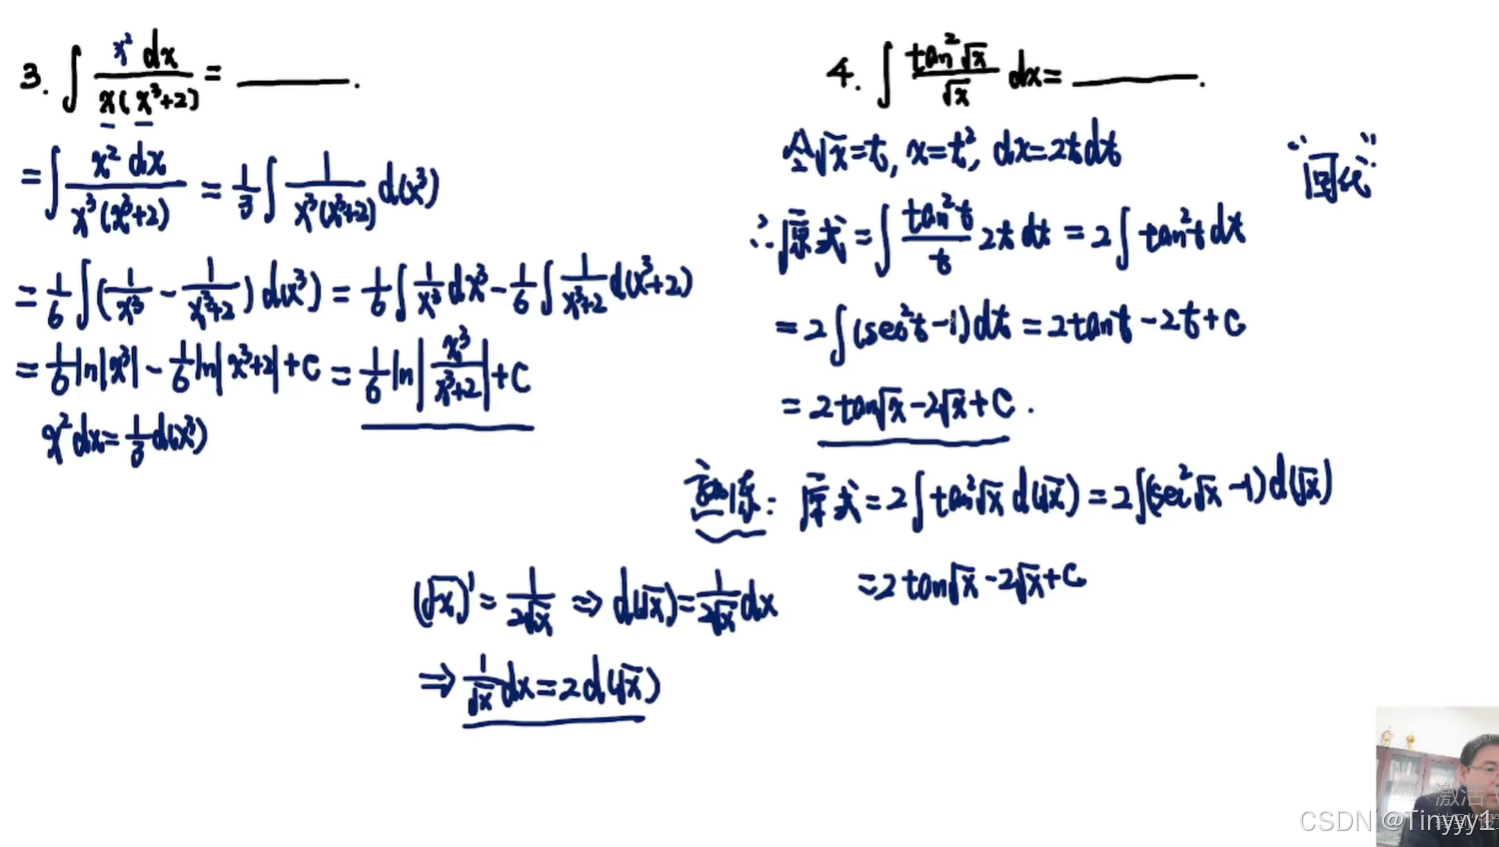 3. ∫ x² dx / x(x³+2) = ______.
= ∫ x² dx / x³(x³+2) = 1/3 ∫ 1 / x³(x³+2) d(x³)
= 1/6 ∫ (1/x³ − 1/(x³+2)) d(x³) = 1/6 ∫ 1/x³ dx³ − 1/6 ∫ 1/(x³+2) d(x³+2)
= 1/6 ln|x³| − 1/6 ln|x³+2| + C = 1/6 ln|x³/(x³+2)| + C
x² dx = 1/3 d(x³)
4. ∫ tan²√x / √x dx = ______.
令√x = t, x = t², dx = 2t dt
“回代”
∴ 原式 = ∫ tan²t / t 2t dt = 2 ∫ tan²t dt
= 2 ∫ (sec²t − 1) dt = 2tant − 2t + C
= 2tan√x − 2√x + C.
熟练: 原式 = 2 ∫ tan²√x d(√x) = 2 ∫ (sec²√x − 1) d(√x)
= 2tan√x − 2√x + C
(√x)' = 1/2√x ⇒ d(√x) = 1/2√x dx
⇒ 1/√x dx = 2d(√x)
激活
CSDN @Tinyyy1